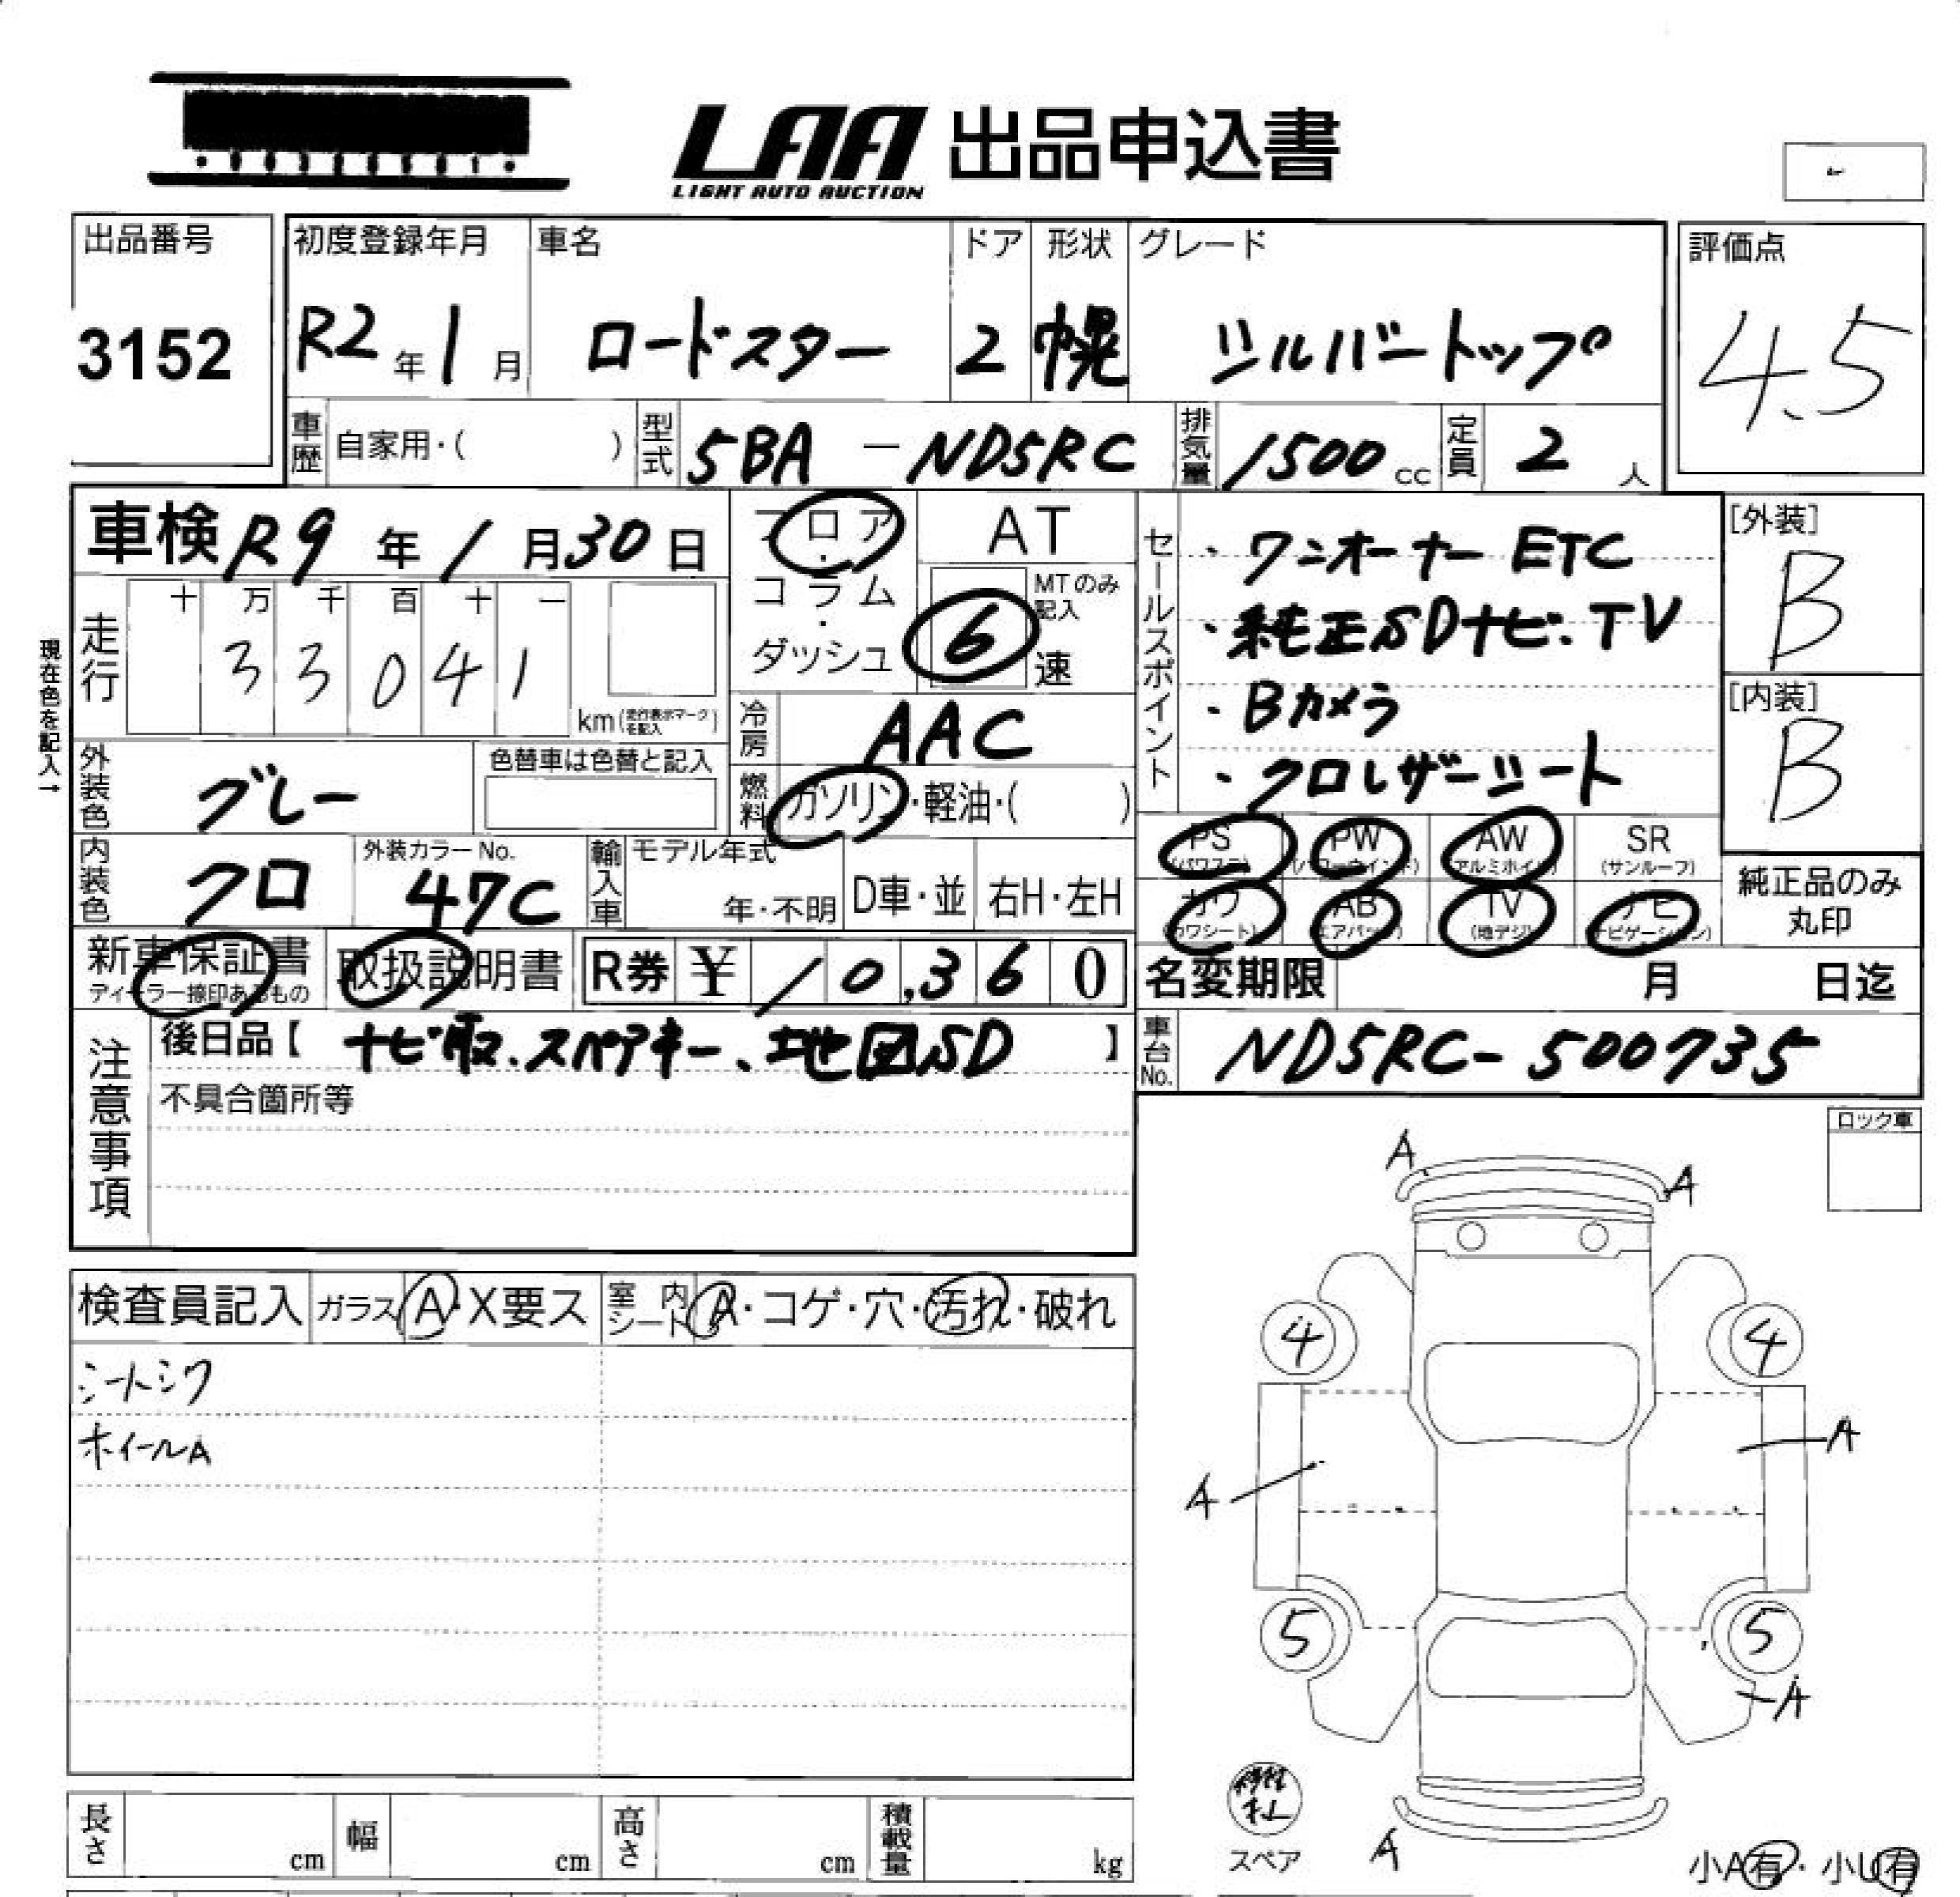 LAA 出品申込書
LIGHT AUTO AUCTION
出品番号
3152
初度登録年月
R2年1月
車名
ロードスター
ドア
2
形状
幌
グレード
シルバートップ
評価点
4.5
車歴 自家用・( )
型式 5BA - ND5RC
排気量 1500 cc
定員 2 人
車検 R9年1月30日
フロア・コラム・ダッシュ
AT
MTのみ記入
6 速
セールスポイント
・ワンオーナー ETC
・純正SDナビ.TV
・Bカメラ
・クロレザーシート
[外装]
B
[内装]
B
現在色を記入→
走行
十 万 千 百 十 一
3 3 0 4 1
km(走行表示マークを記入)
冷房 AAC
外装色 グレー
色替車は色替と記入
燃料 ガソリン・軽油・( )
内装色 クロ
外装カラーNo.
47C
輸入車
モデル年式
年・不明
D車・並
右H・左H
PS (パワステ)
PW (パワーウインド)
AW (アルミホイル)
SR (サンルーフ)
カワ (カワシート)
AB (エアバック)
TV (地デジ)
ナビ (ナビゲーション)
純正品のみ
丸印
新車保証書
ディーラー捺印あるもの
取扱説明書
R券 ¥10,360
名変期限 月 日迄
注意事項
後日品【 ナビ取.スペアキー、地図SD 】
不具合箇所等
車台No. ND5RC-500735
ロック車
検査員記入 ガラス A・X要ス 室内シート A・コゲ・穴・汚れ・破れ
シートシワ
ホイールA
A
A
4
4
A
A
5
5
A
A
スペア
小A有・小U有
長さ cm
幅 cm
高さ cm
積載量 kg